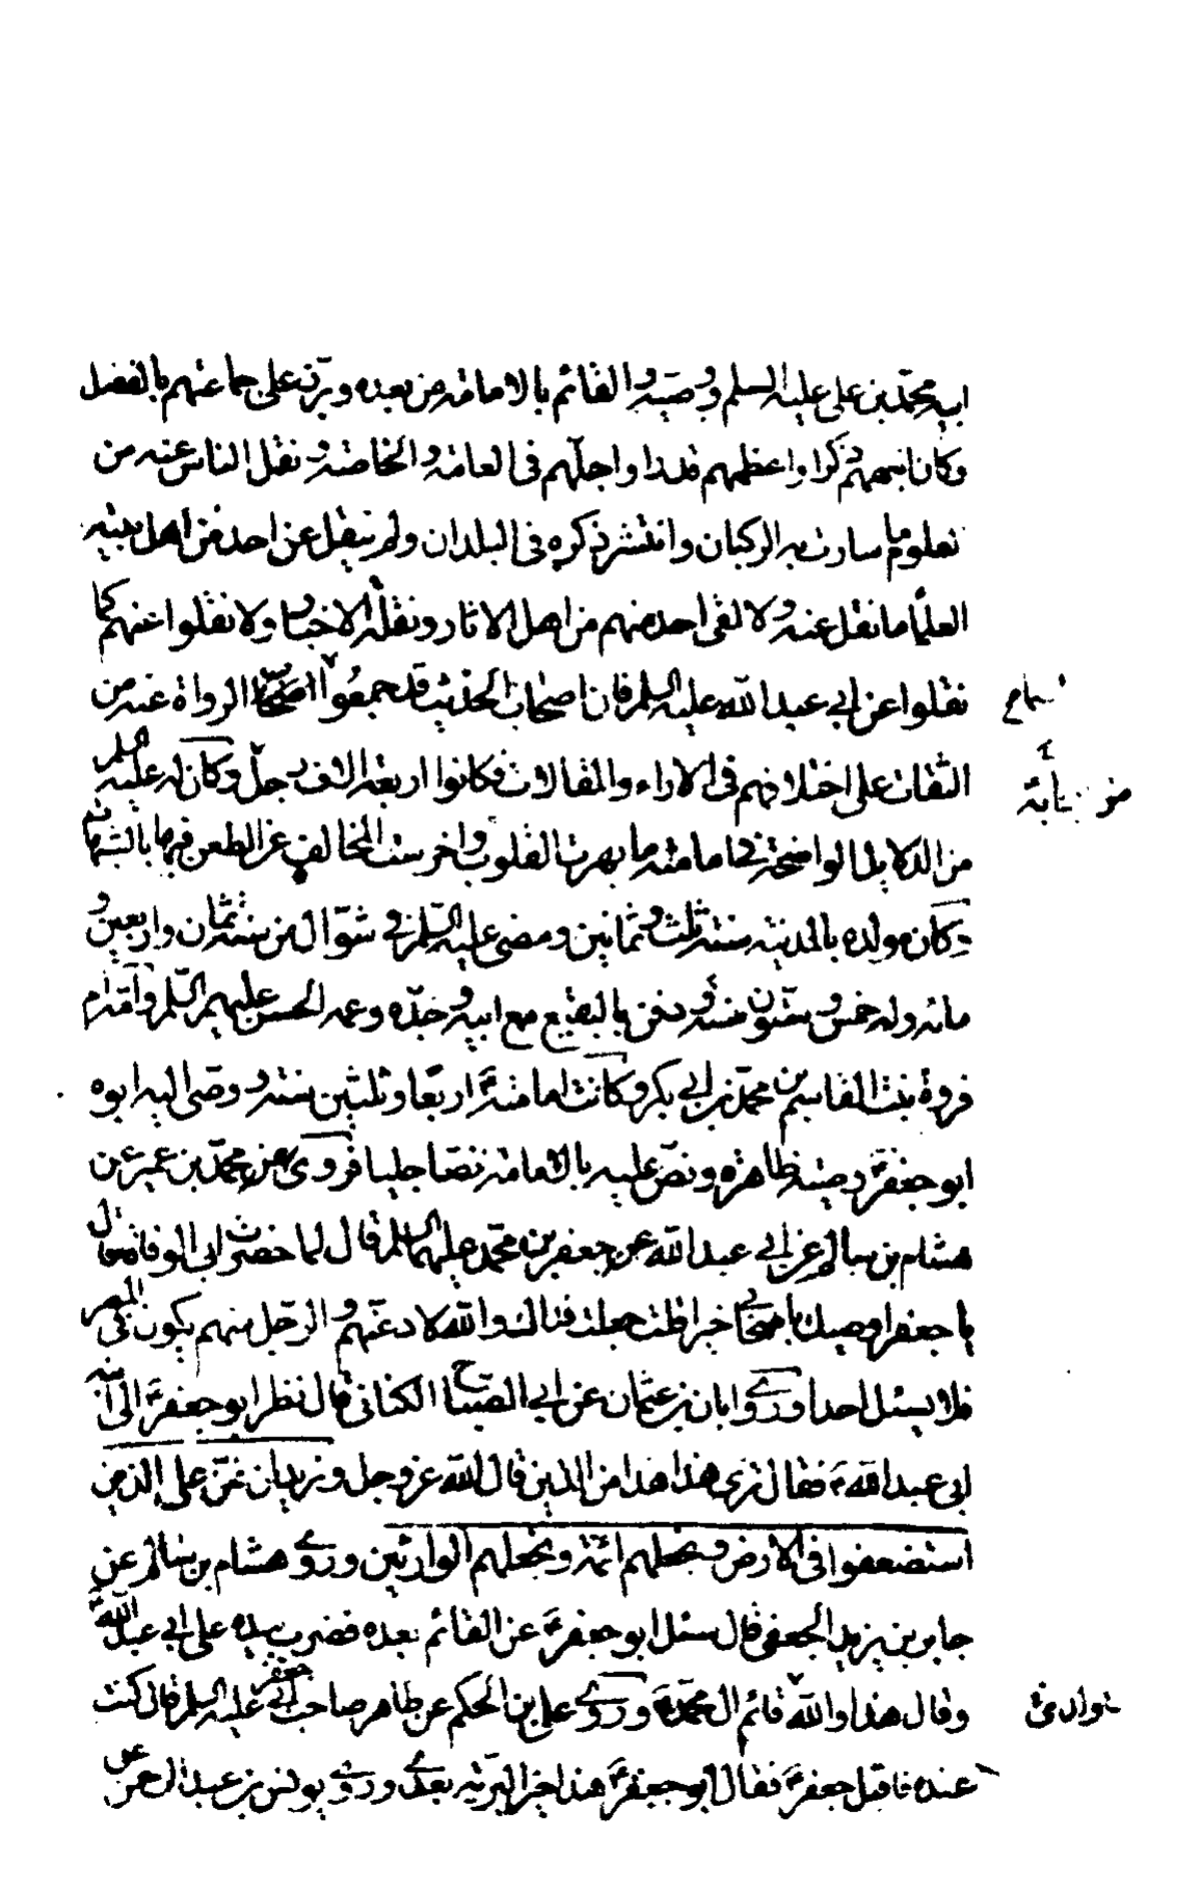 ابيه محمد بن علي عليه السلم و وصيه و القائم بالامامة من بعده و برّز على جماعتهم بالفضل
وكان انبههم ذكرا و اعظمهم قدرا و اجلّهم في العامة و الخاصة و نقل الناس عنه من
العلوم ما سارت به الركبان و انتشر ذكره في البلدان و لم ينقل عن احد من اهل بيته
العلماء ما نقل عنه و لا لقى احد منهم من اهل الاثار و نقلة الاخبار و لا نقلوا عنهم كما
نقلوا عن ابي عبد الله عليه السلم فان اصحاب الحديث قد جمعوا اسماء الرواة عنه من
الثقات على اختلافهم في الاراء و المقالات فكانوا اربعة الاف رجل و كان له عليه السلم
من الدلايل الواضحة في امامته ما بهرت القلوب و اخرست المخالف عن الطعن فيها بالشبهات
و كان مولده بالمدينة سنة ثلث و ثمانين و مضى عليه السلم في شوّال من سنة ثمان و اربعين و
مائة و له خمس و ستون سنة و دفن بالبقيع مع ابيه و جدّه و عمه الحسن عليهم السلم و امّه ام
فروة بنت القاسم بن محمد بن ابي بكر و كانت امامته ع اربعا و ثلثين سنة و وصى اليه ابوه
ابو جعفر ع وصية ظاهرة و نصّ عليه بالامامة نصّا جليا فروى محمد بن عمير عن
هشام بن سالم عن ابي عبد الله جعفر بن محمد عليهما السلم قال لما حضرت ابي الوفاة قال
يا جعفر اوصيك باصحابي خيرا قلت جعلت فداك و الله لادعنّهم و الرجل منهم يكون في المصر
فلا يسئل احدا و روى ابان بن عثمان عن ابي الصباح الكناني قال نظر ابو جعفر ع الى ابنه
ابي عبد الله ع فقال ترى هذا هذا من الذين قال الله عز و جل و نريد ان نمنّ على الذين
استضعفوا في الارض و نجعلهم ائمة و نجعلهم الوارثين و روى هشام بن سالم عن
جابر بن يزيد الجعفي قال سئل ابو جعفر ع عن القائم بعده فضرب بيده على ابي عبد الله ع
و قال هذا و الله قائم ال محمد ع و روى علي بن الحكم عن طاهر صاحب ابي جعفر عليه السلم قال كنت
عنده فاقبل جعفر ع فقال ابو جعفر ع هذا خير البرية بعدي و روى يونس بن عبد الرحمن عن